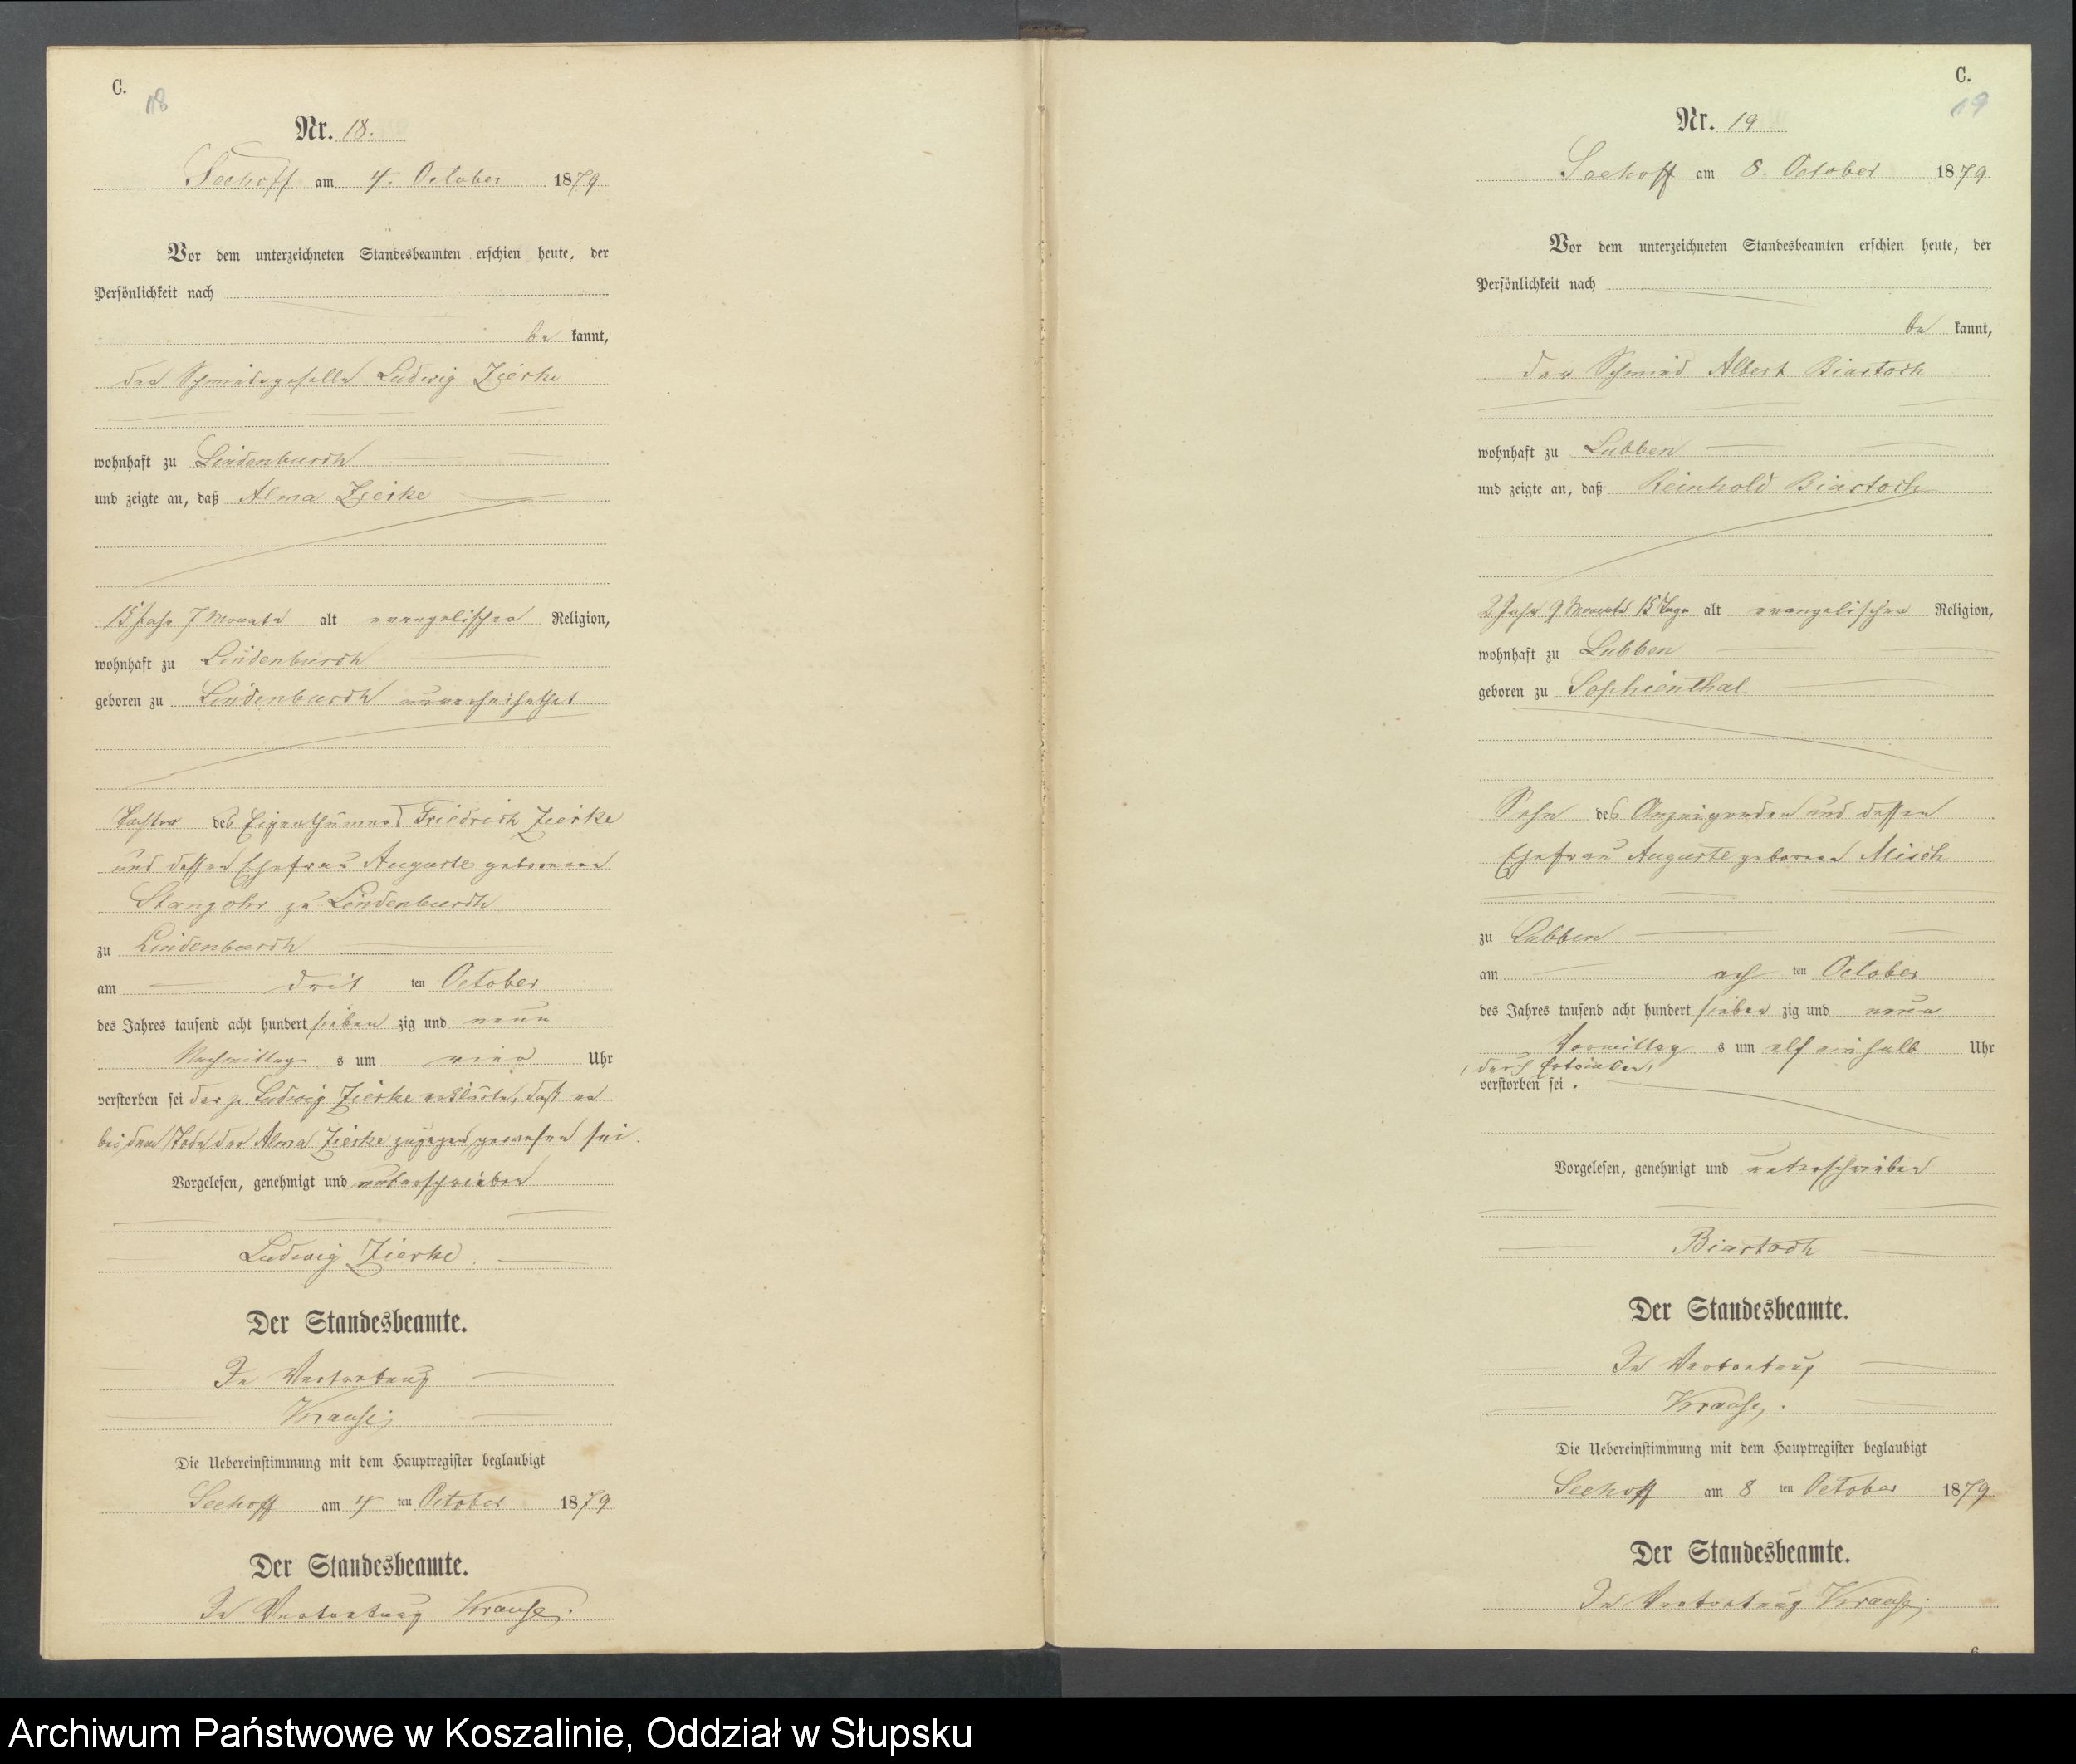 C.
18
Nr. 18.
Seehoff am 4. October 1879
Vor dem unterzeichneten Standesbeamten erschien heute, der
Persönlichkeit nach
be kannt,
der Schmiedegeselle Ludwig Zierke
wohnhaft zu Lindenbusch
und zeigte an, daß Alma Zierke
15 Jahr 7 Monate alt evangelischer Religion,
wohnhaft zu Lindenbusch
geboren zu Lindenbusch unverheirathet
Tochter des Eigenthümers Friedrich Zierke
und dessen Ehefrau Auguste geborenen
Stangohr zu Lindenbusch
zu Lindenbusch
am drit ten October
des Jahres tausend acht hundert sieben zig und neun
Nachmittag s um vier Uhr
verstorben sei der p. Ludwig Zierke erklärte, daß er
bei dem Tode der Alma Zierke zugegen gewesen sei.
Vorgelesen, genehmigt und unterschrieben
Ludwig Zierke
Der Standesbeamte.
In Vertretung
Krause
Die Uebereinstimmung mit dem Hauptregister beglaubigt
Seehoff am 4 ten October 1879
Der Standesbeamte.
In Vertretung Krause.
C.
19
Nr. 19
Seehoff am 8. October 1879
Vor dem unterzeichneten Standesbeamten erschien heute, der
Persönlichkeit nach
be kannt,
der Schmied Albert Biastoch
wohnhaft zu Lubben
und zeigte an, daß Reinhold Biastoch
2 Jahr 9 Monate 15 Tage alt evangelischer Religion,
wohnhaft zu Lubben
geboren zu Sophienthal
Sohn des Anzeigenden und dessen
Ehefrau Auguste geborene Misch
zu Lubben
am ach ten October
des Jahres tausend acht hundert sieben zig und neun
Vormittag s um elf ein halb Uhr
verstorben sei.
Vorgelesen, genehmigt und unterschrieben
Biastoch
Der Standesbeamte.
In Vertretung
Krause.
Die Uebereinstimmung mit dem Hauptregister beglaubigt
Seehoff am 8 ten October 1879
Der Standesbeamte.
In Vertretung Krause
Archiwum Państwowe w Koszalinie, Oddział w Słupsku